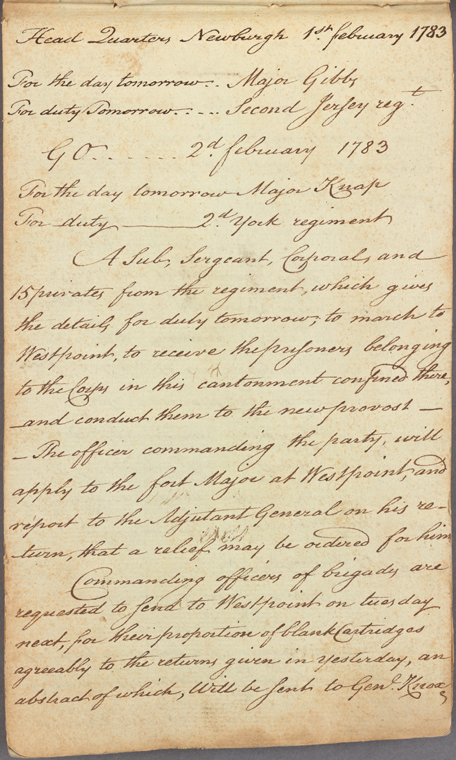 Head Quarters Newburgh 1st february 1783
For the day tomorrow.. Major Gibbs
For duty Tomorrow..... Second Jersey regt.
GO....... 2d. february 1783
For the day tomorrow Major Knap
For duty ———— 2d. York regiment
A Sub, Sergeant, Corporal, and
15 privates from the regiment, which gives
the details for duty tomorrow, to march to
Westpoint, to receive the prisoners belonging
to the Corps in this cantonment confined there,
—and conduct them to the new provost —
— The officer commanding the party, will
apply to the fort Major at Westpoint, and
report to the Adjutant General on his re-
-turn, that a relief may be ordered for him
Commanding officers of brigades are
requested to send to Westpoint on tuesday
next, for their proportion of blank Cartridges
agreeably to the returns given in yesterday, an
abstract of which, Will be sent to Genl. Knox